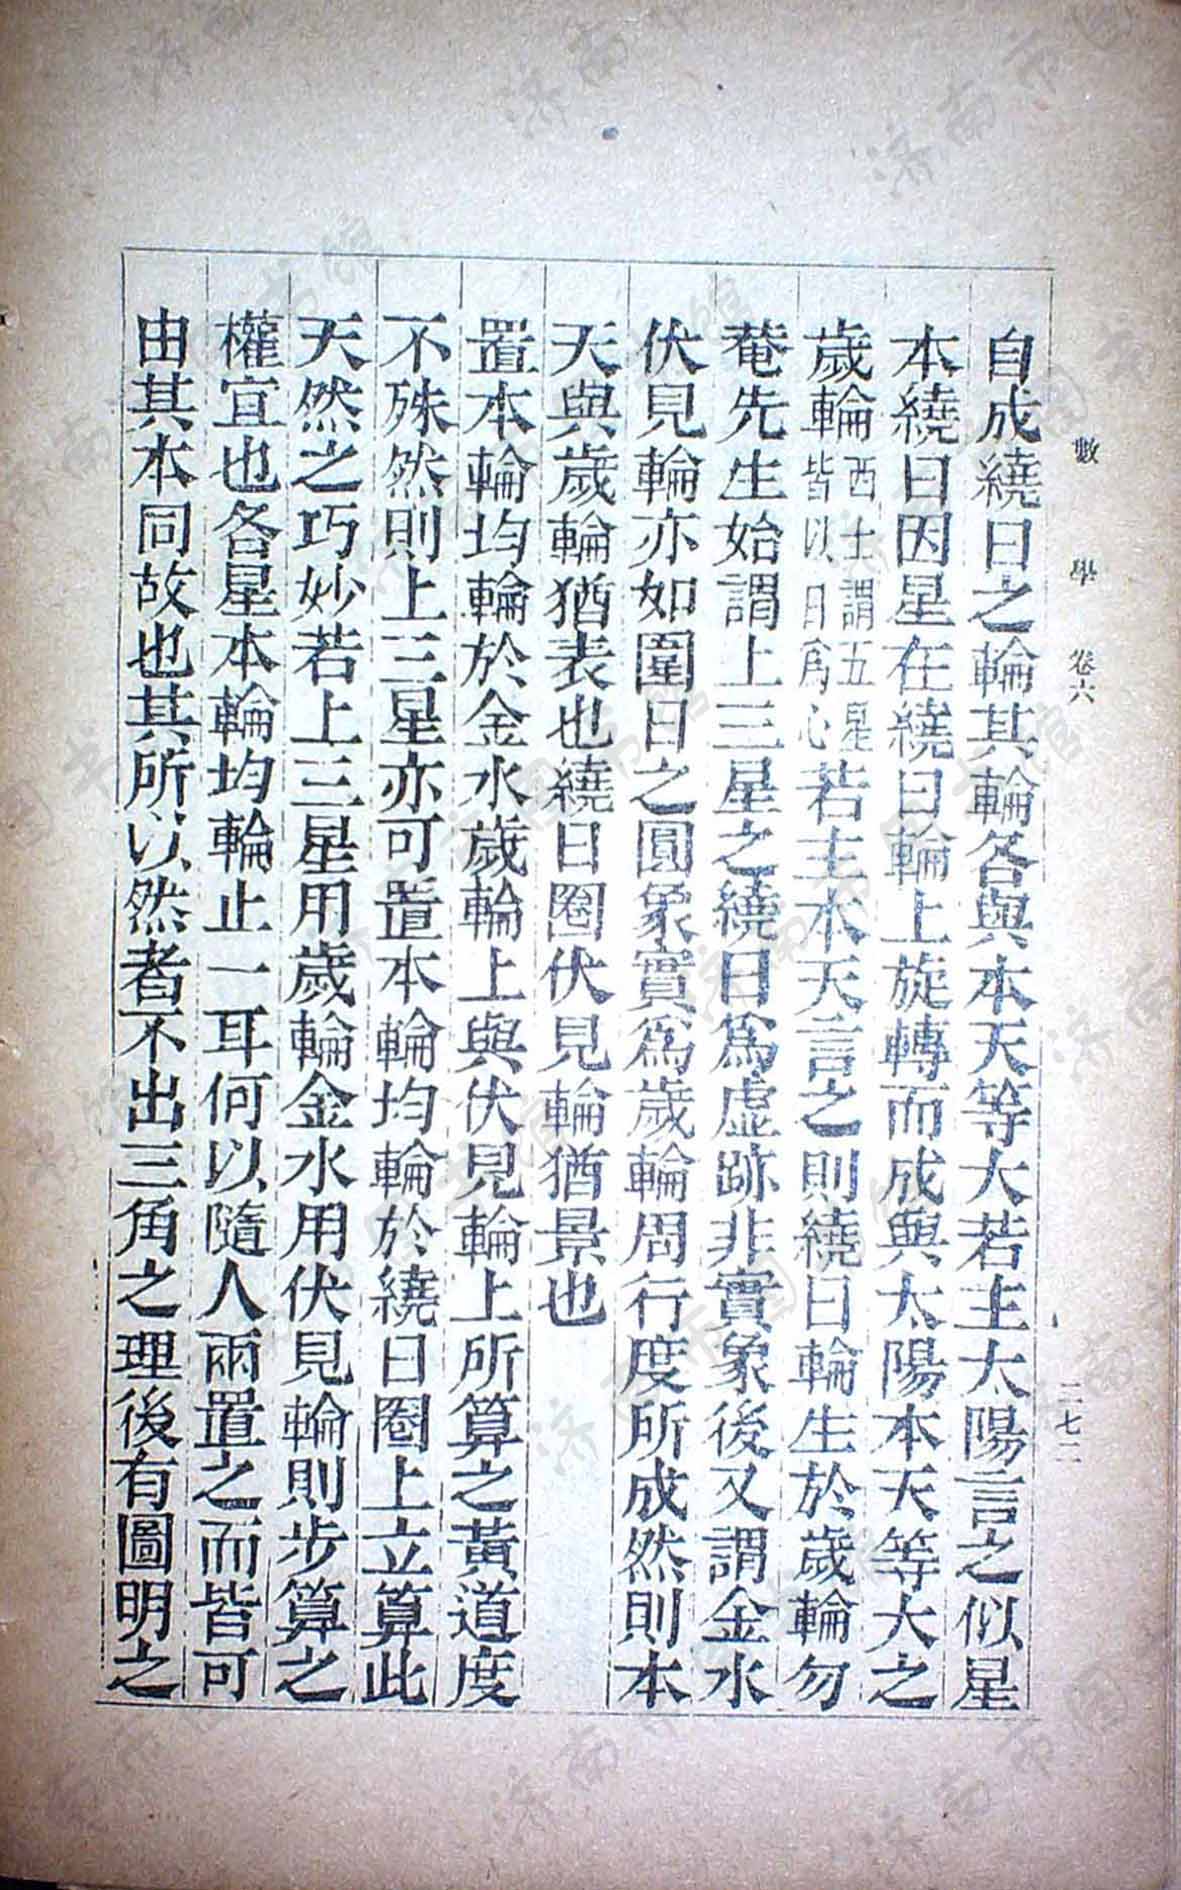 數學 卷六 二七二
自成繞日之輪其輪各與本天等大若主太陽言之似星
本繞日因星在繞日輪上旋轉而成與太陽本天等大之
歲輪西士謂五星皆以日爲心若主本天言之則繞日輪生於歲輪勿
菴先生始謂上三星之繞日爲虛跡非實象後又謂金水
伏見輪亦如圍日之圓象實爲歲輪周行度所成然則本
天與歲輪猶表也繞日圈伏見輪猶景也
置本輪均輪於金水歲輪上與伏見輪上所算之黃道度
不殊然則上三星亦可置本輪均輪於繞日圈上立算此
天然之巧妙若上三星用歲輪金水用伏見輪則步算之
權宜也各星本輪均輪止一耳何以隨人兩置之而皆可
由其本同故也其所以然者不出三角之理後有圖明之